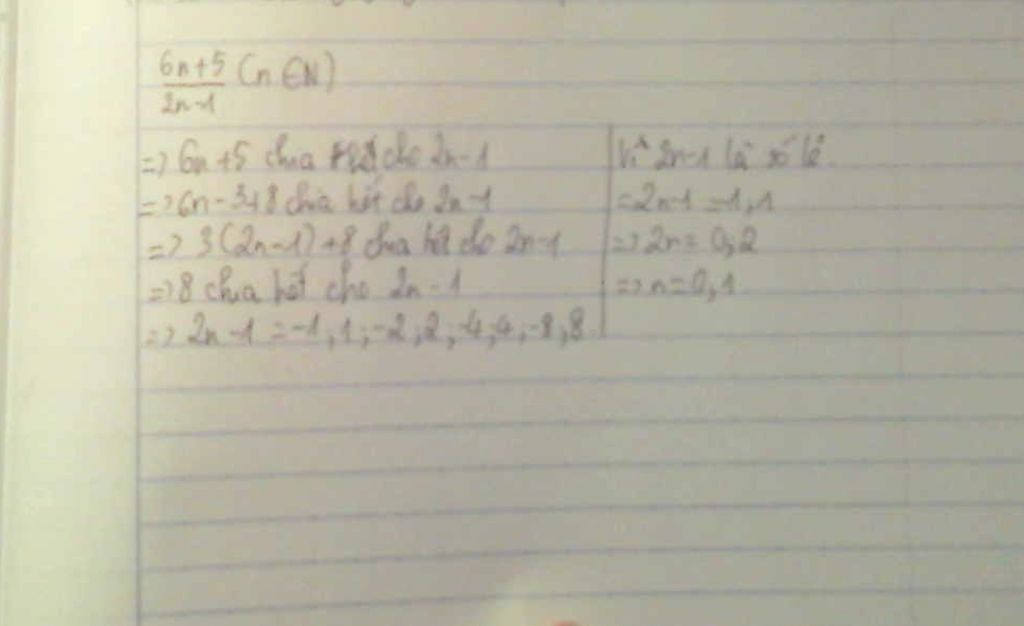 6n+5/2n-1 (n ∈ N)
=> 6n+5 chia hết cho 2n-1
=> 6n-3+8 chia hết cho 2n-1
=> 3(2n-1)+8 chia hết cho 2n-1
=> 8 chia hết cho 2n-1
=> 2n-1 = -1,1;-2;2;-4;4;-8;8
Vì 2n-1 là số lẻ
= 2n-1 = -1,1
=> 2n = 0,2
=> n = 0,1